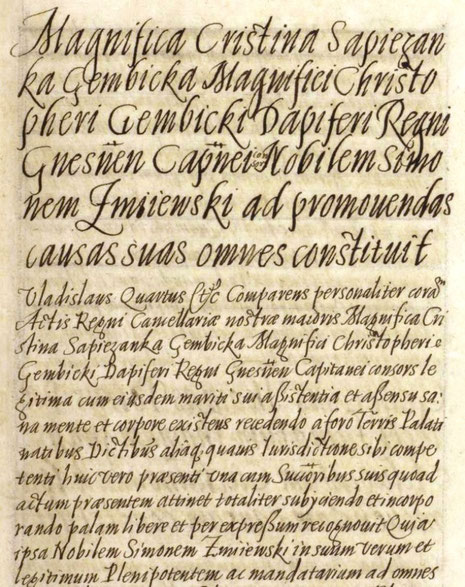 Magnifica Cristina Sapiezan
ka Gembicka Magnifici Christo
pheri Gembicki Dapiferi Regni
Gnesnen Capnei consor Nobilem Simo
nem Zmiiewski ad promouendas
causas suas omnes constituit
Vladislaus Quartus etc Comparens personaliter coram
Actis Regni Cancellariæ nostræ maioris Magnifica Cri
stina Sapiezanka Gembicka Magnifici Christopheri
Gembicki Dapiferi Regni Gnesnen Capitanei consors le
gitima cum eiusdem mariti sui assistentia et assensu sa:
na mente et corpore existens recedendo a foro Terris Palati
natibus Dictibus aliaq quauis Iurisdictione sibi compe
tenti huic vero præsenti vna cum Succribus suis quoad
actum præsentem attinet totaliter subyciendo et incorpo
rando palam libere et per expressum recognouit Quia
ipsa Nobilem Simonem Zmiiewski in suum verum et
legitimum Plenipotentem ac mandatarium ad omnes